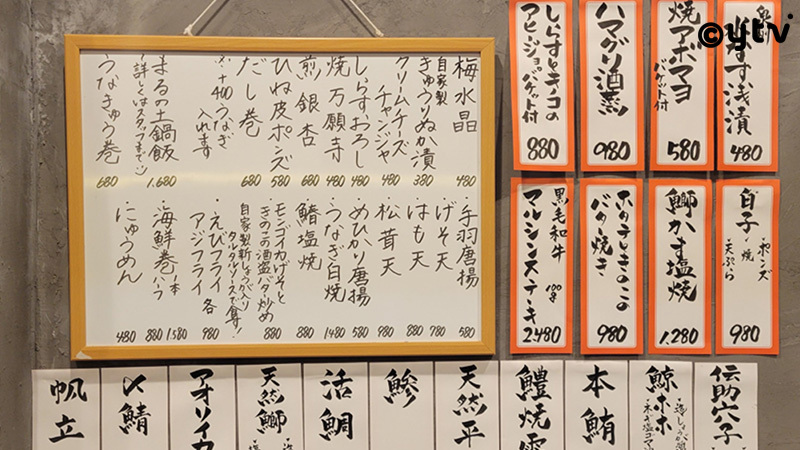 ©ytv
梅水晶 480
自家製
きゅうりぬか漬 380
クリームチーズ
チャンジャ 480
しらすおろし 480
焼万願寺 480
煎銀杏 680
ひね皮ポンズ 580
だし巻 680
※+400うなぎ
入れます
まるの土鍋飯 1.680
(詳しくはスタッフまで
うなきゅう巻 680
・手羽唐揚 580
げそ天 780
・はも天 880
・松茸天 980
・めひかり唐揚 580
・うなぎ白焼 1480
・鰆塩焼 880
・モンゴイカげそと
きのこの酒盗バター炒め 880
自家製新しょうが入り
タルタルソースで食す!
・えびフライ
アジフライ 各 980
・海鮮巻 一本 1.580
ハーフ 880
・にゅうめん 480
なす浅漬 480
焼アボマヨ
バゲット付 580
ハマグリ酒蒸 980
しらすとキノコの
アヒージョバゲット付 880
白子
・ポンズ
・焼
・天ぷら
980
鰤かま塩焼 1.280
ホタテときのこの
バター焼き 980
黒毛和牛
マルシンステーキ 100g 2.480
伝助穴子
鯨ホホ
本鮪
鱧焼霜
天然平
鯵
活鯛
天然鰤
アオリイカ
〆鯖
帆立